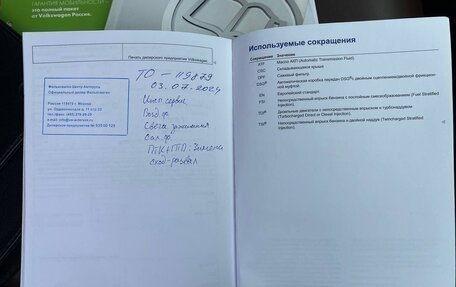 ГАРАНТИЯ МОБИЛЬНОСТИ –
это полный пакет
от Volkswagen Россия.
Печать дилерского предприятия Volkswagen
Фольксваген Центр Автоорта
Официальный дилер Фольксваген
Россия 119415 г. Москва
ТО - 119879
03.07.2024
Инсп сервис
Возд.ф.
Свечи зажигания
Сал.ф.
Замена
сход-развал
Используемые сокращения
Сокращение Значение
ATF Масло АКП (Automatic Transmission Fluid).
CSC Складывающаяся крыша.
DPF Сажевый фильтр.
DSG® Автоматическая коробка передач DSG® с двойным сцеплением
ной муфтой.
EN Европейский стандарт.
FSI Непосредственный впрыск бензина с послойным смесеобразованием (Fuel Stratified
Injection).
TDI® Дизельные двигатели с непосредственным впрыском и турбонаддувом
(Turbocharged Direct or Diesel Injection).
TSI® Непосредственный впрыск бензина и двойной наддув (Twincharged Stratified
Injection).